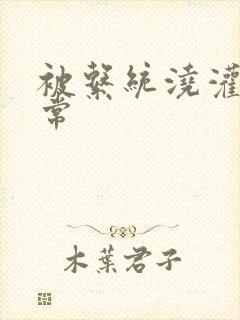 被繫統澆灌
常
木葉君子